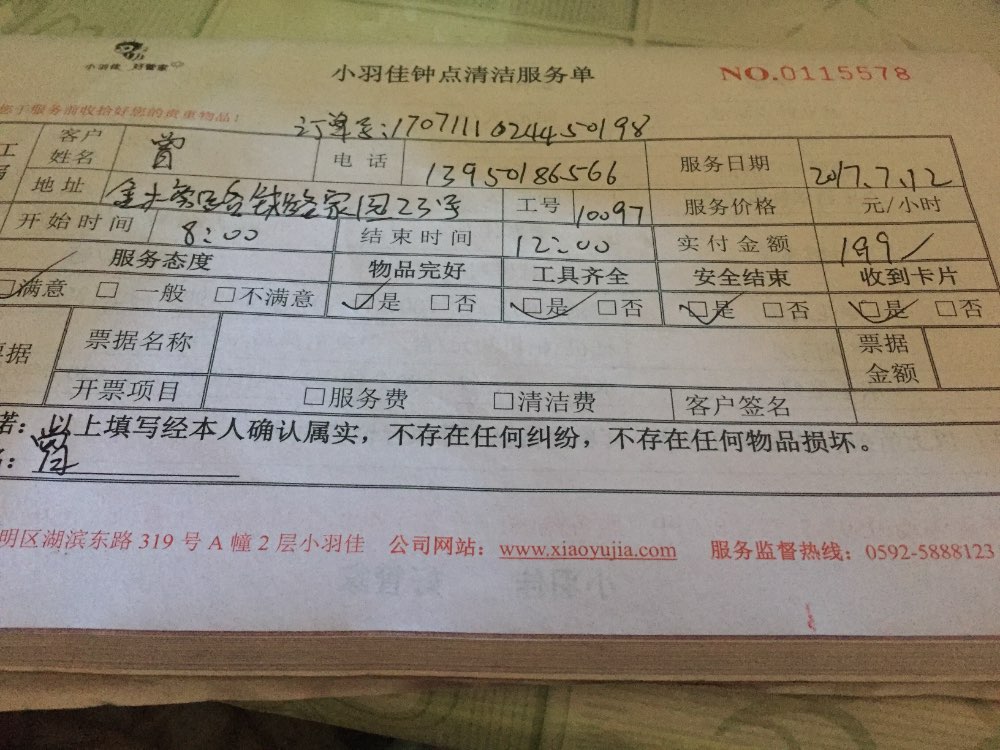 小羽佳 好管家
小羽佳钟点清洁服务单 NO.0115578
您于服务前收拾好您的贵重物品!
订单号:1707111024450198
客户姓名 曾 电话 13950186566 服务日期 2017.7.12
地址 家园23号 工号 10097 服务价格 元/小时
开始时间 8:00 结束时间 12:00 实付金额 199/
服务态度 物品完好 工具齐全 安全结束 收到卡片
□满意 □一般 □不满意 □是 □否 □是 □否 □是 □否 □是 □否
票据 票据名称 票据金额
开票项目 □服务费 □清洁费 客户签名
诺:以上填写经本人确认属实,不存在任何纠纷,不存在任何物品损坏。
曾
明区湖滨东路 319 号 A 幢 2 层小羽佳 公司网站:www.xiaoyujia.com 服务监督热线:0592-5888123